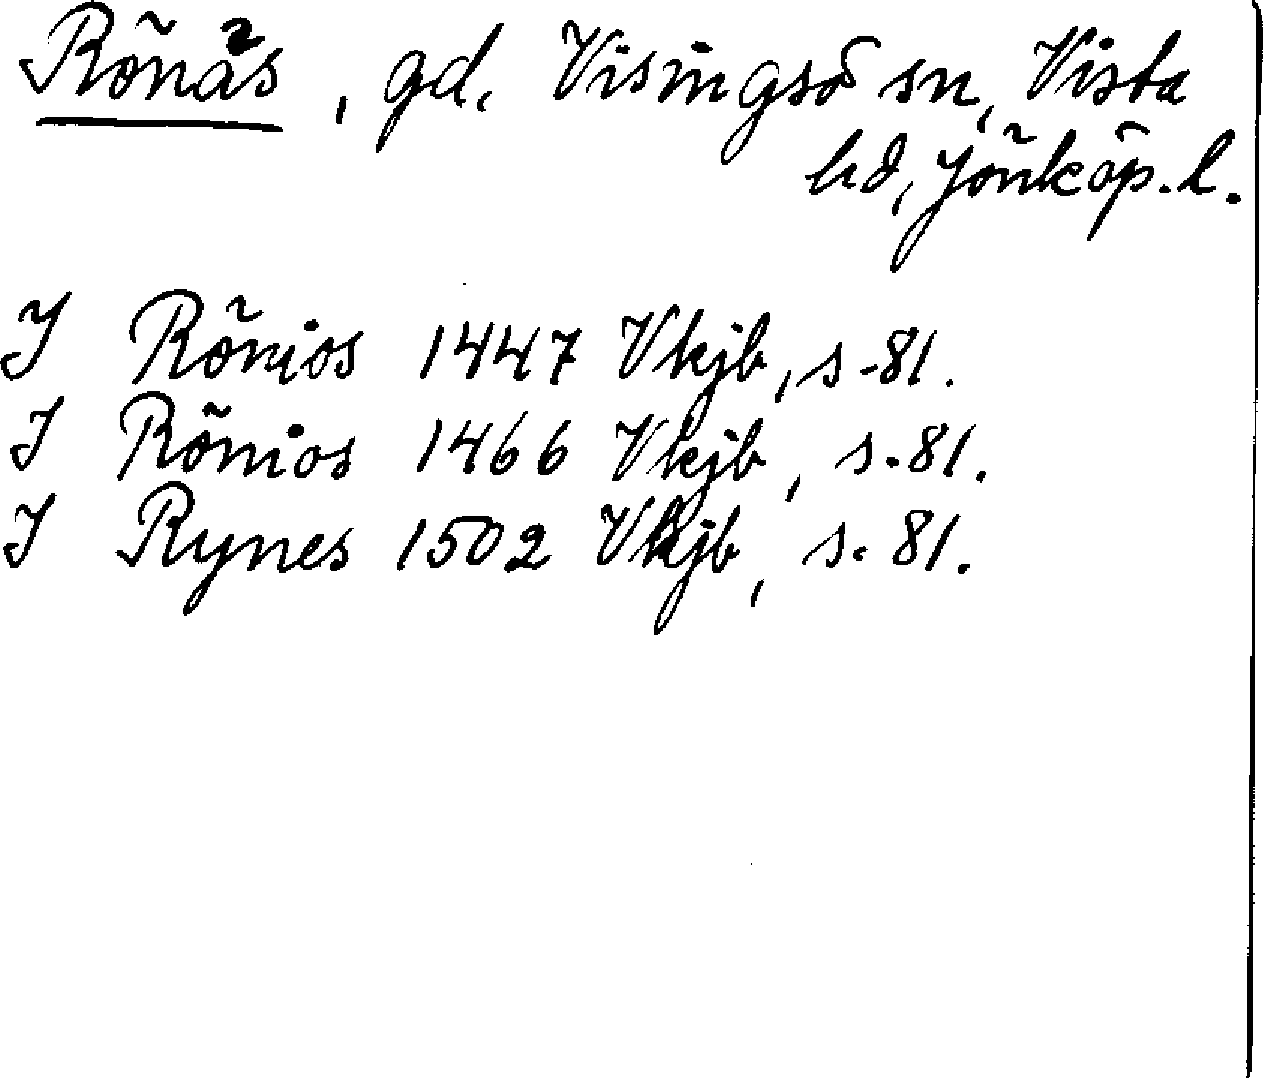 Rönås, gd. Visingsö sn, Vista
hd, Jönköp. l.
I Rönios 1447 Vkjb, s. 81.
I Rönios 1466 Vkjb, s. 81.
I Rynes 1502 Vkjb, s. 81.